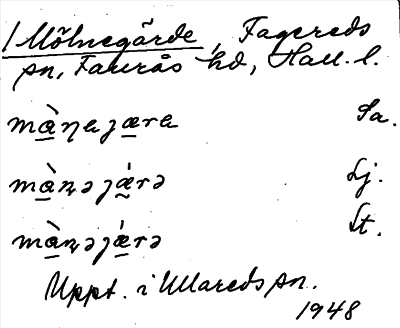 / Mölnegärde, Fagereds
sn, Faurås hd, Hall. l.
mæ̀ɳɐȷæra Sa.
mæ̀ɳəȷǽrə Lj.
mæ̀ɳəȷǽrə St.
Uppt. i Ullareds sn.
1948